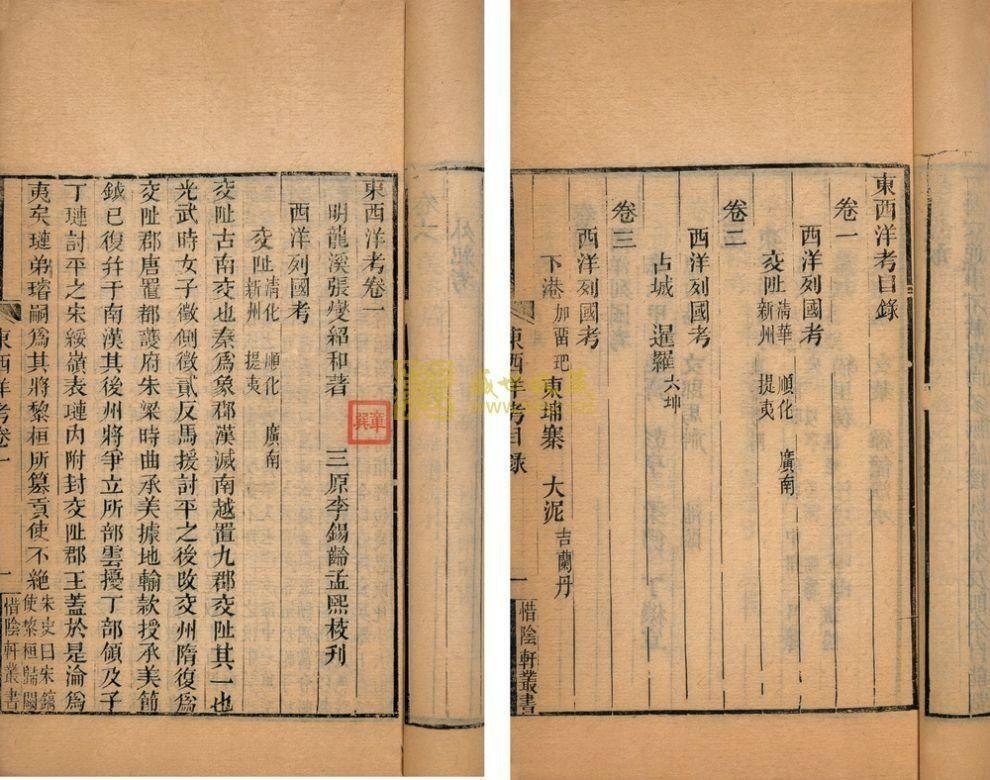 東西洋考目錄
卷一
西洋列國考
交阯 清華 順化 廣南
新州 提夷
卷二
西洋列國考
占城 暹羅 六坤
卷三
西洋列國考
下港 加㽞𠯈 東埔寨 大泥 吉蘭丹
東西洋考目錄
一
惜陰軒叢書
東西洋考卷一
明龍溪張燮紹和著 三原李錫齡孟熙校刊
西洋列國考
交阯 清化 順化 廣南
新州 提夷
交阯古南交也秦為象郡漢滅南越置九郡交阯其一也
光武時女子徵側徵貳反馬援討平之後改交州隋復為
交阯郡唐置都護府朱梁時曲承美據地輸款授承美節
鉞已復并于南漢其後州將爭立所部雲擾丁部領及子
丁璉討平之宋綏嶺表璉內附封交阯郡王蓋於是淪為
夷矣璉弟璿嗣為其將黎桓所篡貢使不絕 宋史曰宋鎬
使黎桓歸闕
東西洋考卷一
一
惜陰軒叢書